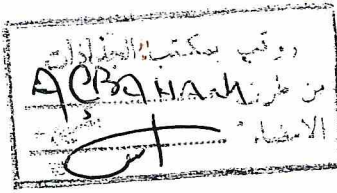 روقب بمكتب الجذاذات
من طرف AÇBAHAM
الامضاء